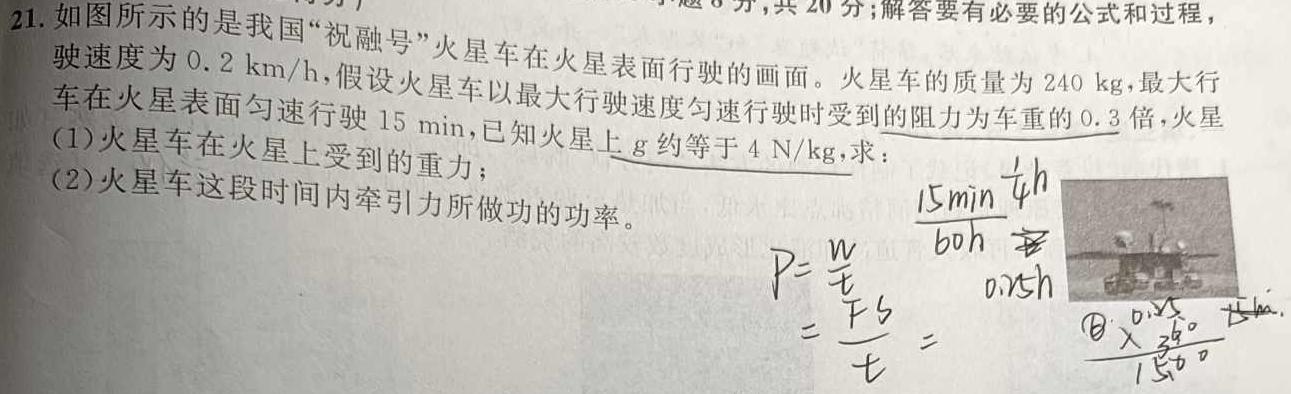 分,共 20 分;解答要有必要的公式和过程,
21. 如图所示的是我国“祝融号”火星车在火星表面行驶的画面。火星车的质量为 240 kg,最大行
驶速度为 0.2 km/h,假设火星车以最大行驶速度匀速行驶时受到的阻力为车重的 0.3 倍,火星
车在火星表面匀速行驶 15 min,已知火星上 g 约等于 4 N/kg,求:
(1)火星车在火星上受到的重力;
(2)火星车这段时间内牵引力所做功的功率。
15min
60h
1/4 h
0.25h
P = W/t
= FS/t =